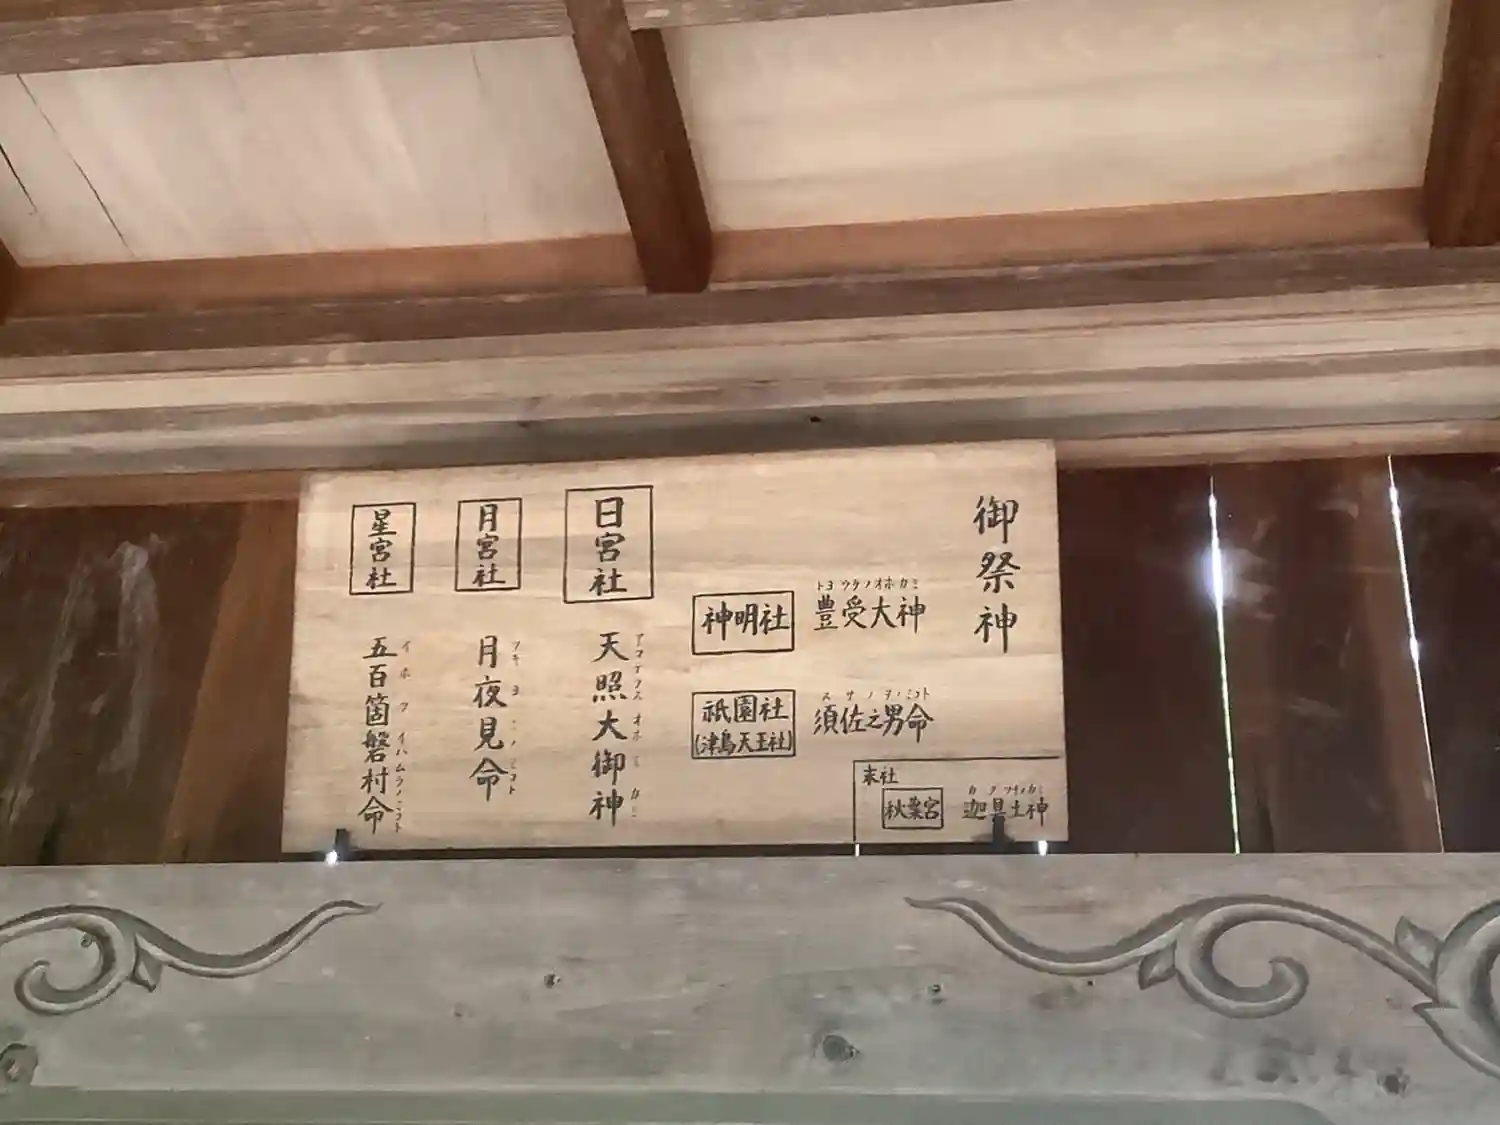 御祭神
トヨウケノオホカミ
神明社 豊受大神
スサノヲノミコト
祇園社 須佐之男命
(津島天王社)
末社
カグツチノカミ
秋葉宮 迦具土神
日宮社 天照大御神
アマテラスオホミカミ
月宮社 月夜見命
ツキヨミノミコト
星宮社 五百箇磐村命
イホツイハムラノミコト